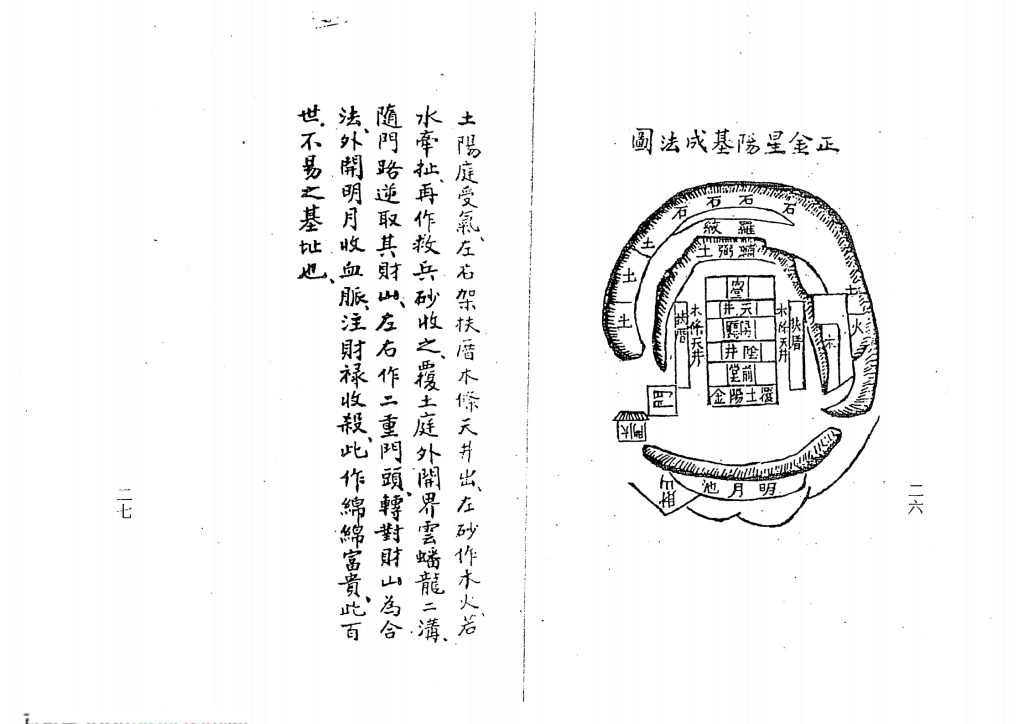 正金星陽基成法圖
石石石石
土
土
土
土
火
木
羅紋
土
堂
天井
陰井
前堂
土陽金
扶厝
木條天井
木條天井
扶厝
門
大門
明月池
二六
土陽庭受氣、左右架扶厝木條天井出、左砂作木火、若
水牽扯、再作救兵砂收之、覆土庭外開界雲蟠龍二溝、
隨門路逆取其財山、左右作二重門頭、轉對財山為合
法、外開明月收血脈、注財祿收殺、此作綿綿富貴、此百
世不易之基址也、
二七